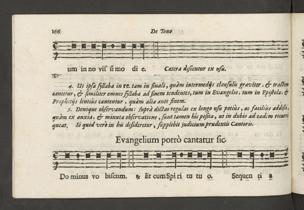 166 De Tono
um in no vis si mo di e. Cætera discentur ex usu.
4. Ut ipsa syllaba in et. tam in finali, quàm intermedijs clausulis graviter, & tractim
cantetur, & similiter omnes syllabæ ad finem tendentes, tum in Evangelio, tum in Epistola: &
Prophetijs lentiùs cantentur, quàm aliæ ante finem.
5. Denique observandum: supra dictas regulas ex longo usu potiùs, ac facilius addisci,
quàm ex anxia, & minuta observatione, sunt tamen his posita, ut in dubio ad eas recurri
queat. Si quid verò in his desideretur, supplebit judicium prudentis Cantoris.
Evangelium porrò cantatur sic.
Do minus vo biscum. & Et cum Spi ri tu tu o. Sequen ti a